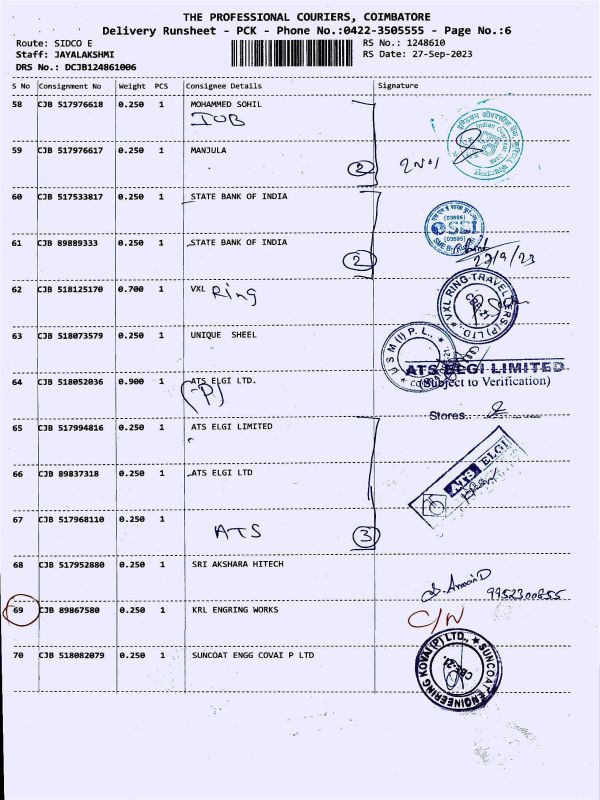 THE PROFESSIONAL COURIERS, COIMBATORE
Delivery Runsheet - PCK - Phone No.:0422-3505555 - Page No.:6
Route: SIDCO E
Staff: JAYALAKSHMI
DRS No.: DCJB124861006
RS No.: 1248610
RS Date: 27-Sep-2023
S No Consignment No Weight PCS Consignee Details Signature
58 CJB 517976618 0.250 1 MOHAMMED SOHIL
IOB
59 CJB 517976617 0.250 1 MANJULA
2
60 CJB 517533817 0.250 1 STATE BANK OF INDIA
(03696)
SBI
61 CJB 89889333 0.250 1 STATE BANK OF INDIA
2
27/9/23
62 CJB 518125170 0.700 1 VXL Ring
VXL RING TRAVELLERS (P) LTD.
63 CJB 518073579 0.250 1 UNIQUE SHEEL
U S M (I) P. L.,
ATS ELGI LIMITED
(Subject to Verification)
64 CJB 518052036 0.900 1 ATS ELGI LTD.
(P)
Stores..
65 CJB 517994816 0.250 1 ATS ELGI LIMITED
ATS ELGI
66 CJB 89837318 0.250 1 ATS ELGI LTD
67 CJB 517968110 0.250 1
ATS
3
68 CJB 517952880 0.250 1 SRI AKSHARA HITECH
69 CJB 89867580 0.250 1 KRL ENGRING WORKS
C/N
70 CJB 518082079 0.250 1 SUNCOAT ENGG COVAI P LTD
SUNCOAT ENGINEERING KOVAI (P) LTD.,
CBE-21.